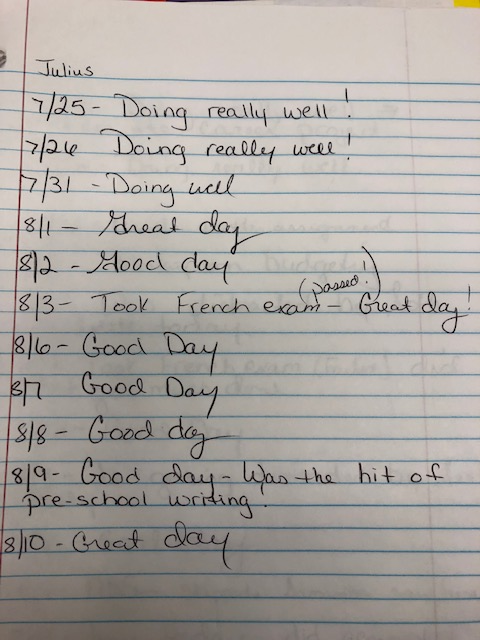 Julius
7/25 - Doing really well!
7/26 Doing really well!
7/31 - Doing well
8/1 - Great day
8/2 - Good day
8/3 - Took French exam (passed!) - Great day!
8/6 - Good Day
8/7 Good Day
8/8 - Good day
8/9 - Good day - Was the hit of
pre-school writing!
8/10 - Great day